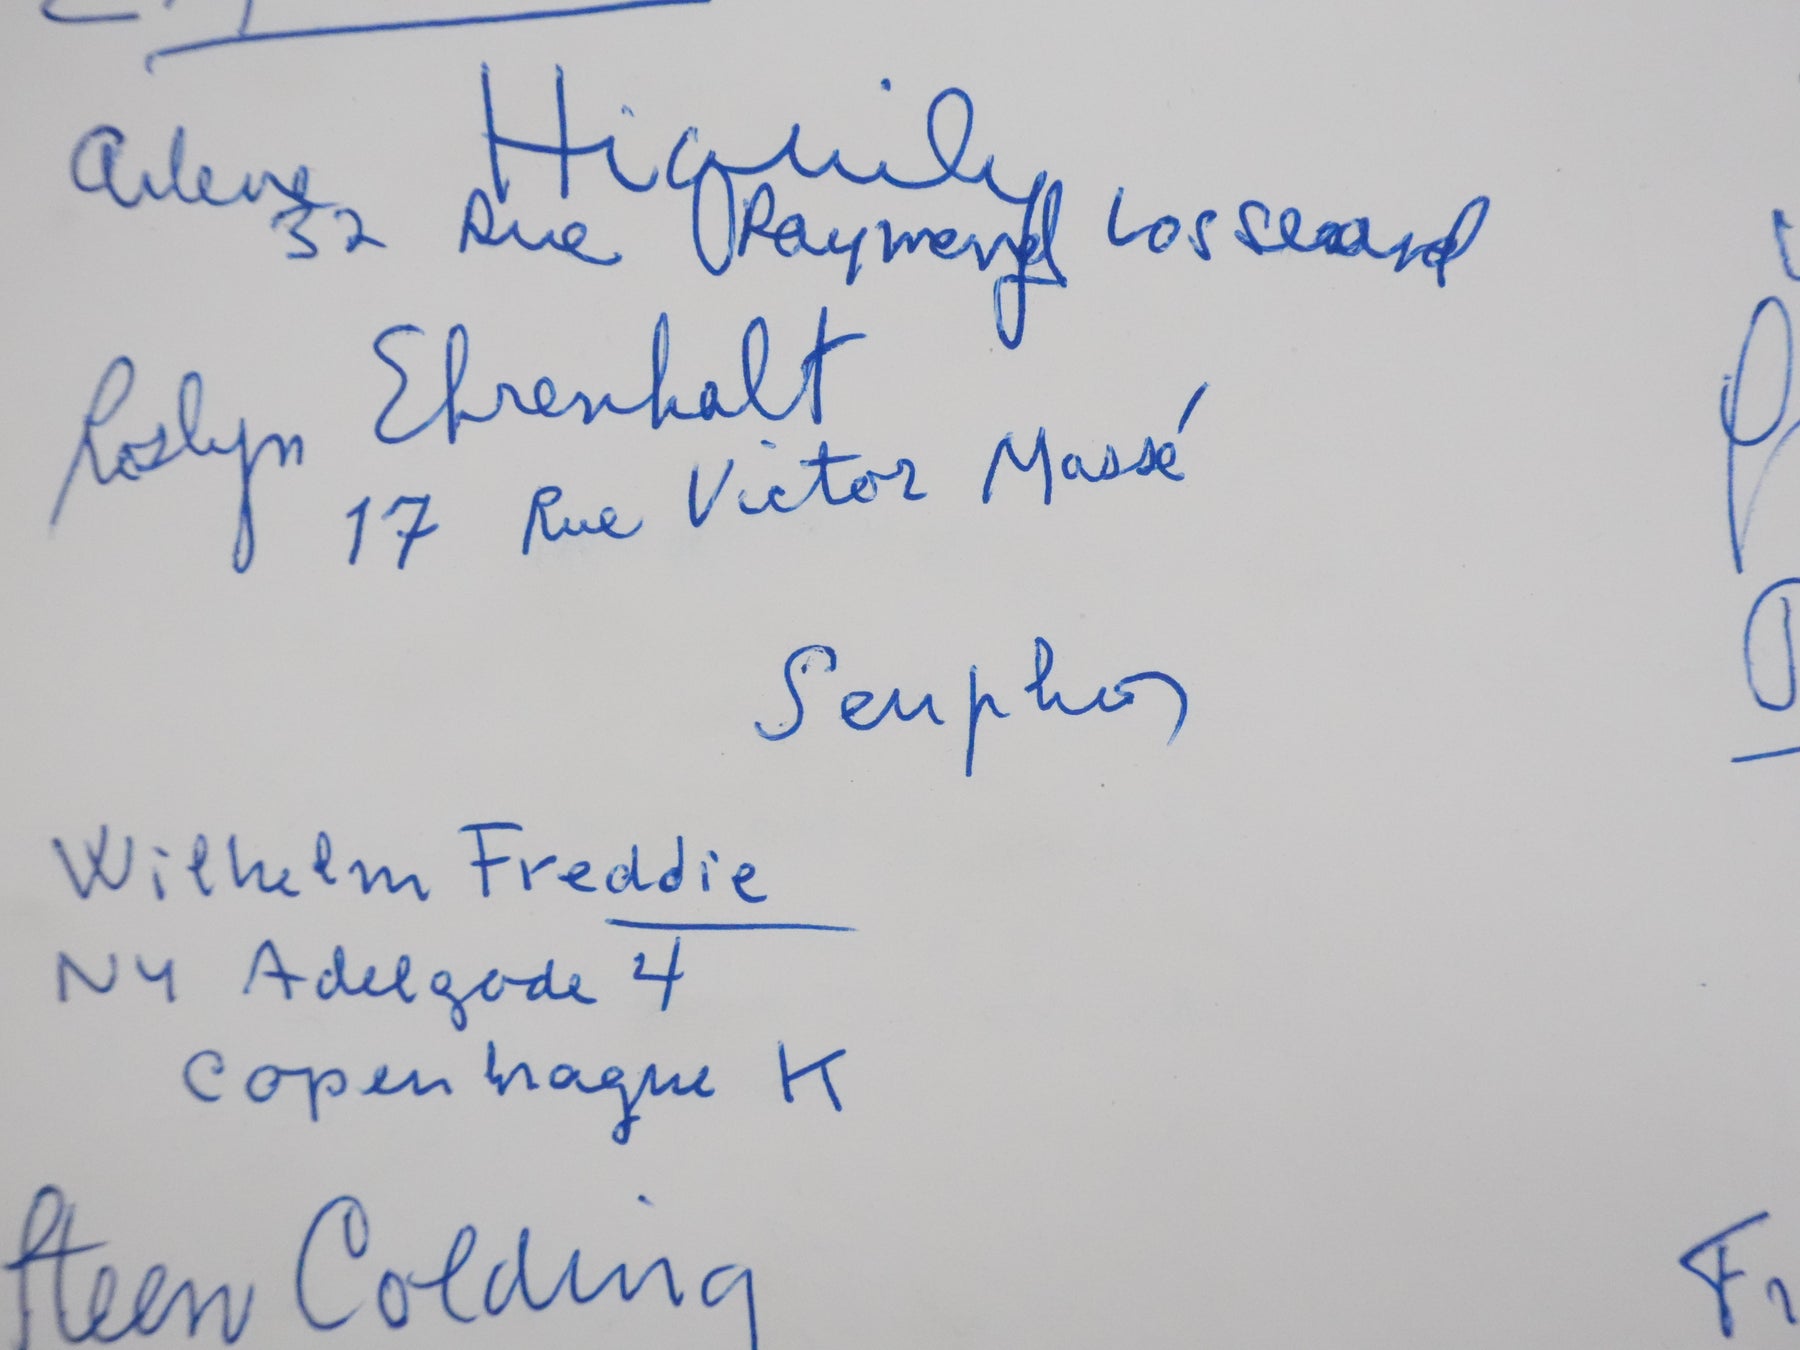 Arlene Hiquily
32 Rue Raymond Losserand
Roslyn Ehrenhalt
17 Rue Victor Massé
Seuphor
Wilhelm Freddie
NY Adelgade 4
Copenhague K
Steen Colding